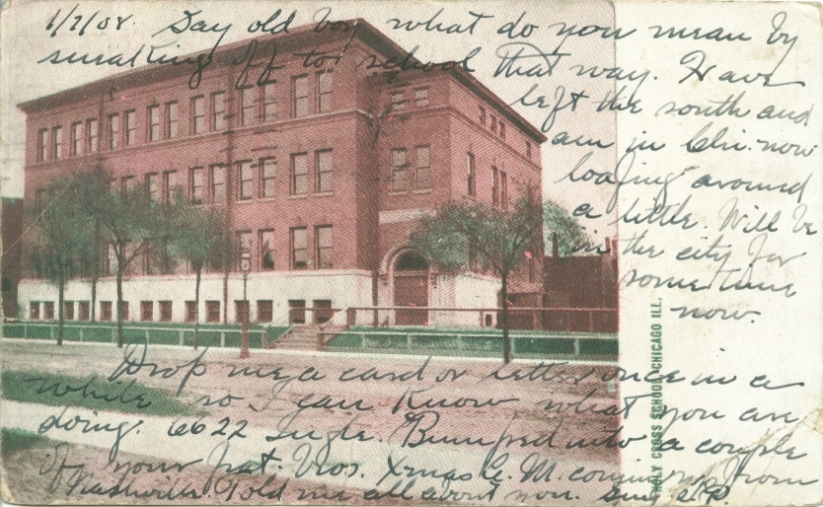 1/7/08. Say old boy what do you mean by
sneaking off to school that way. Have
left the south and
am in Chi. now
loafing around
a little. Will be
in the city for
some time
now.
Drop me a card or letter once in a
while so I can know what you are
doing. 6622 Ingle. Bumped into a couple
of your frat. Bros. Xmas C. M. coming from
Nashville. Told me all about you.
HOLY CROSS SCHOOL, CHICAGO ILL.